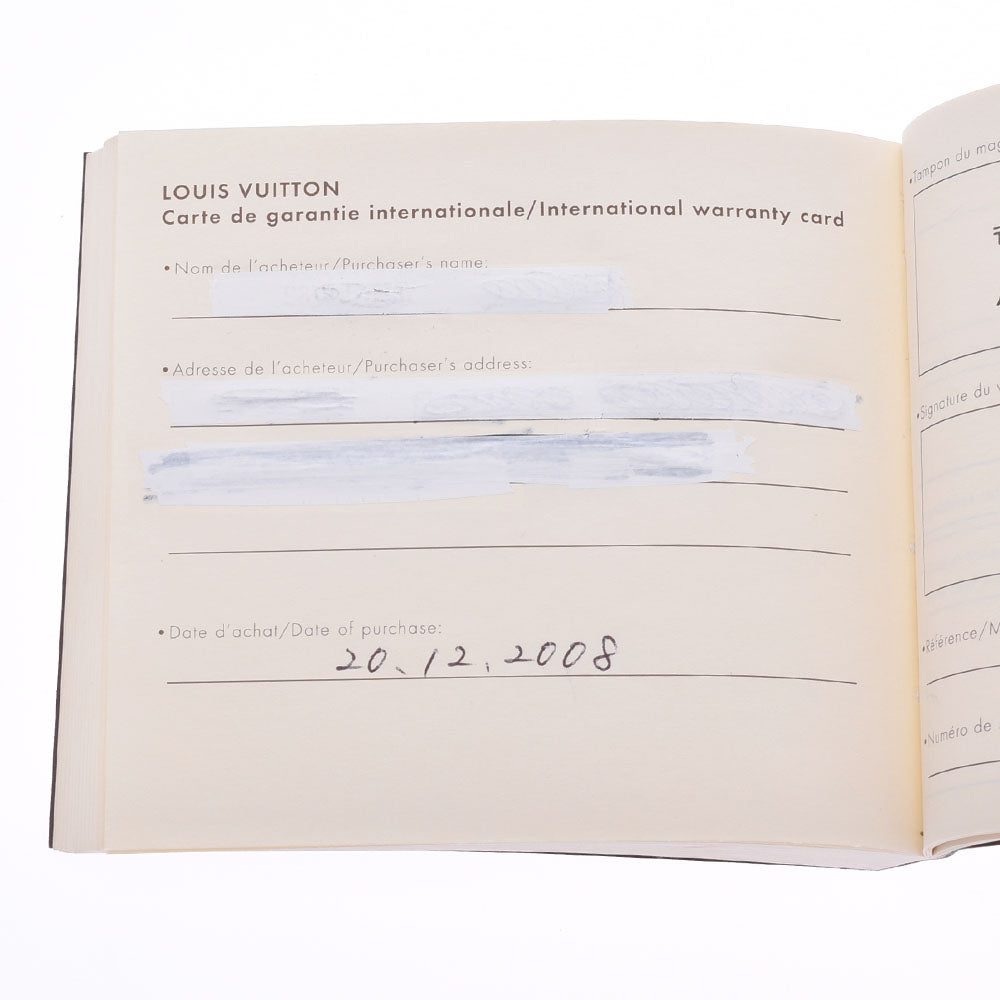 LOUIS VUITTON
Carte de garantie internationale/International warranty card
•Nom de l'acheteur/Purchaser's name:
•Adresse de l'acheteur/Purchaser's address:
•Date d'achat/Date of purchase:
20.12.2008
•Tampon du
•Signature du
•Référence/
•Numéro de